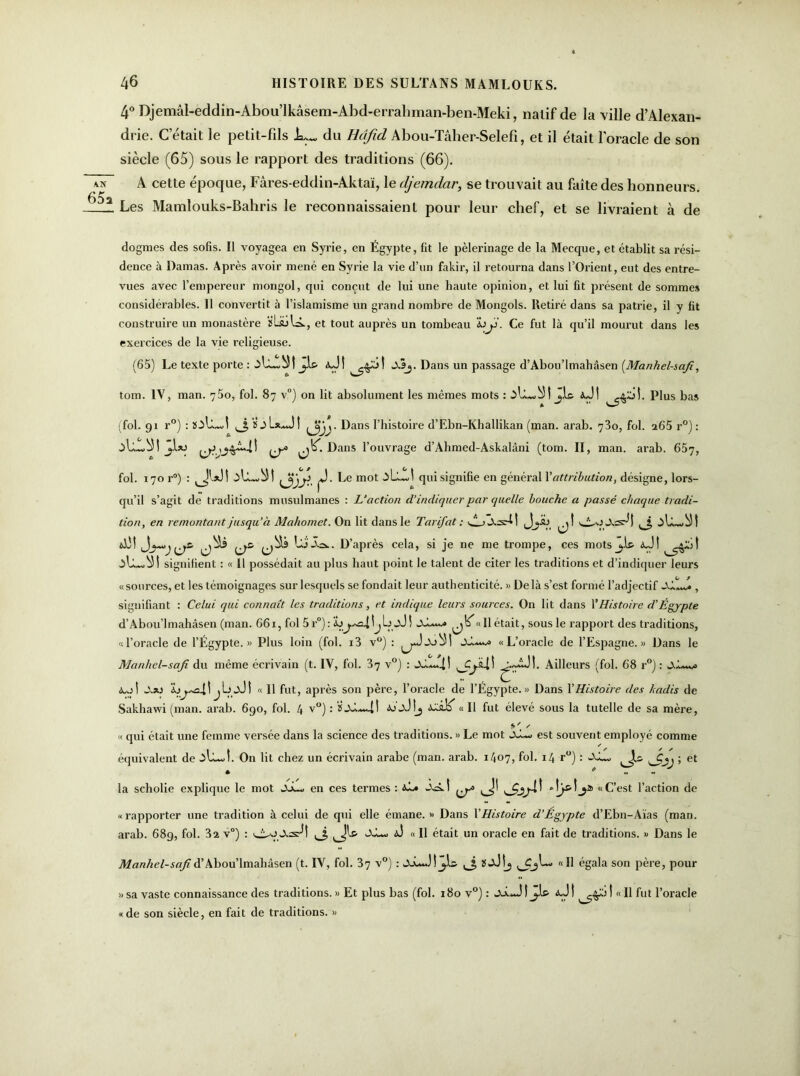 46 HISTOIRE DES SULTANS MAMLOUKS.
4° Djemâl-eddin-Abou'lkâsem-Abd-errahman-ben-Meki, natif de la ville d'Alexan-
drie. C'était le petit-fils سبط du Háfid Abou-Tâher-Selefi, et il était l'oracle de son
siècle (65) sous le rapport des traditions (66).
AN
652
A cette époque, Fâres-eddin-Aktaï, le djemdar, se trouvait au faîte des honneurs.
Les Mamlouks-Bahris le reconnaissaient pour leur chef, et se livraient à de
dogmes des sofis. Il voyagea en Syrie, en Égypte, fit le pèlerinage de la Mecque, et établit sa rési-
dence à Damas. Après avoir mené en Syrie la vie d'un fakir, il retourna dans l'Orient, eut des entre-
vues avec l'empereur mongol, qui conçut de lui une haute opinion, et lui fit présent de sommes
considérables. Il convertit à l'islamisme un grand nombre de Mongols. Retiré dans sa patrie, il y fit
construire un monastère خانقاة, et tout auprès un tombeau تربة. Ce fut là qu'il mourut dans les
exercices de la vie religieuse.
(65) Le texte porte : وقد انتهى اليه علو الاسناد. Dans un passage d'Abou'lmahâsen (Manhel-safi,
tom. IV, man. 750, fol. 87 v°) on lit absolument les mêmes mots : انتهى اليه علو الاسناد. Plus bas
(fol. 91 r°) : تفرد في العادة اسناده. Dans l'histoire d'Ebn-Khallikan (man. arab. 730, fol. 265 r°) :
كان من المشهورين بعلو الاسناد. Dans l'ouvrage d'Ahmed-Askalâni (tom. II, man. arab. 657,
fol. 170 r°) : لم يرزق الاسناد العالى. Le mot اسناد qui signifie en général l'attribution, désigne, lors-
qu'il s'agit de traditions musulmanes : L'action d'indiquer par quelle bouche a passé chaque tradi-
tion, en remontant jusqu'à Mahomet. On lit dans le Tarifat : الاسناد في الحديث ان يقول المحدث
حدثنا فلان عن فلان عن رسول الله. D'après cela, si je ne me trompe, ces mots انتهى اليه علو
الاسناد signifient : « Il possédait au plus haut point le talent de citer les traditions et d'indiquer leurs
« sources, et les témoignages sur lesquels se fondait leur authenticité. » De là s'est formé l'adjectif مسند,
signifiant : Celui qui connaît les traditions, et indique leurs sources. On lit dans l'Histoire d'Égypte
d'Abou'lmahâsen (man. 661, fol 5 r°) : كان مسند الديار المصرية « Il était, sous le rapport des traditions,
« l'oracle de l'Égypte. » Plus loin (fol. 13 v°) : مسند الاندلس « L'oracle de l'Espagne. » Dans le
Manhel-safi du même écrivain (t. IV, fol. 37 v°) : الشيخ المقرى المسند. Ailleurs (fol. 68 r°) : مسند
الديار المصرية بعد ابيه « Il fut, après son père, l'oracle de l'Égypte. » Dans l'Histoire des kadis de
Sakhawi (man. arab. 690, fol. 4 v°) : كفلته والدته المسندة « Il fut élevé sous la tutelle de sa mère,
« qui était une femme versée dans la science des traditions. » Le mot سند est souvent employé comme
équivalent de اسناد. On lit chez un écrivain arabe (man. arab. 1407, fol. 14 r°) : روى على سند ; et
la scholie explique le mot سند en ces termes : هو اعزاء المروى الى من اخذ منه « C'est l'action de
« rapporter une tradition à celui de qui elle émane. » Dans l'Histoire d'Égypte d'Ebn-Aïas (man.
arab. 689, fol. 32 v°) : له سند عالى في الحديث « Il était un oracle en fait de traditions. » Dans le
Manhel-safi d'Abou'lmahâsen (t. IV, fol. 37 v°) : ساوى والده في علو السند « Il égala son père, pour
» sa vaste connaissance des traditions. » Et plus bas (fol. 180 v°) : انتهى اليه علو السند « Il fut l'oracle
« de son siècle, en fait de traditions. »